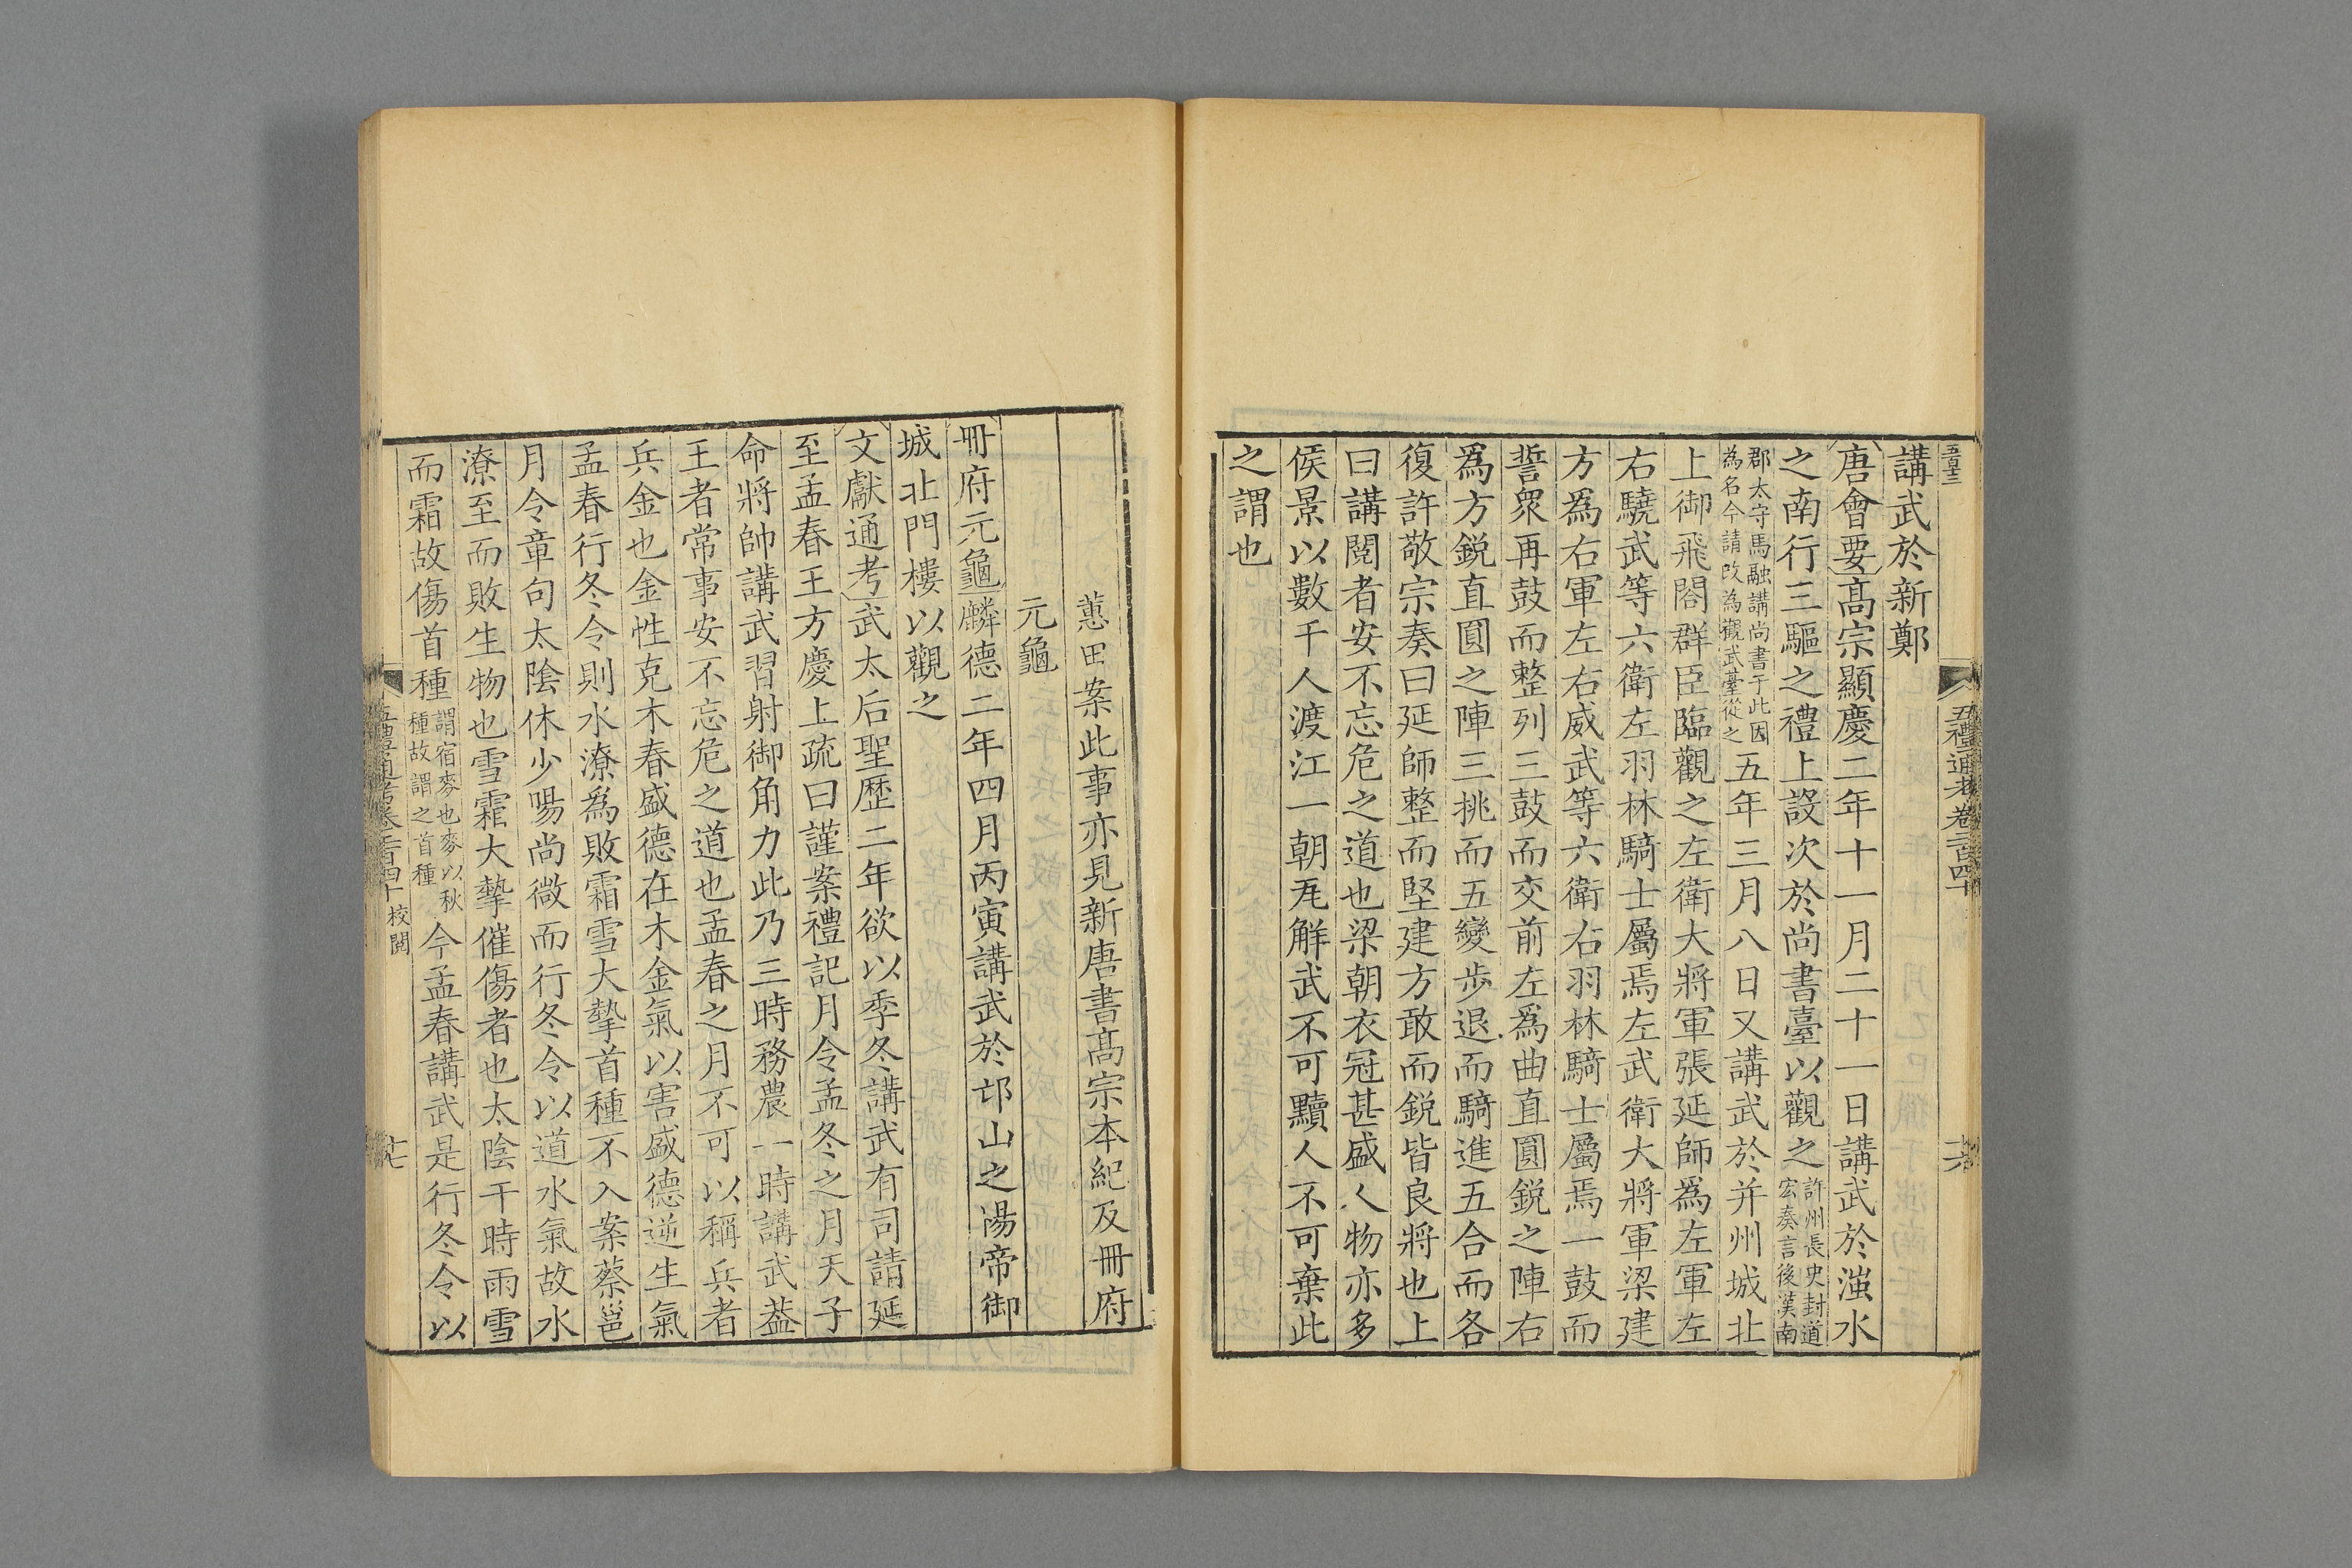 五禮通考卷二百四十
十六
講武於新鄭
唐會要高宗顯慶二年十一月二十一日講武於滍水
之南行三驅之禮上設次於尚書臺以觀之許州長史封道
宏奏言後漢南
郡太守馬融講尚書于此因
為名今請改為觀武臺從之五年三月八日又講武於并州城北
上御飛閣群臣臨觀之左衛大將軍張延師為左軍左
右驍武等六衛左羽林騎士屬焉左武衛大將軍梁建
方為右軍左右威武等六衛右羽林騎士屬焉一鼓而
誓衆再鼓而整列三鼓而交前左為曲直圓鋭之陣右
為方鋭直圓之陣三挑而五變步退而騎進五合而各
復許敬宗奏曰延師整而堅建方敢而鋭皆良將也上
曰講閱者安不忘危之道也梁朝衣冠甚盛人物亦多
侯景以數千人渡江一朝瓦解武不可黷人不可棄此
之謂也
蕙田案此事亦見新唐書高宗本紀及冊府
元龜
冊府元龜麟德二年四月丙寅講武於邙山之湯帝御
城北門樓以觀之
文獻通考武太后聖歴二年欲以季冬講武有司請延
至孟春王方慶上疏曰謹案禮記月令孟冬之月天子
命將帥講武習射御角力此乃三時務農一時講武葢
王者常事安不忘危之道也孟春之月不可以稱兵者
兵金也金性克木春盛德在木金氣以害盛德逆生氣
孟春行冬令則水潦為敗霜雪大摯首種不入案蔡邕
月令章句太陰休少陽尚微而行冬令以道水氣故水
潦至而敗生物也雪霜大摯催傷者也太陰干時雨雪
而霜故傷首種謂宿麥也麥以秋
種故謂之首種今孟春講武是行冬令以
五禮通考卷二百四十
校閱
十七